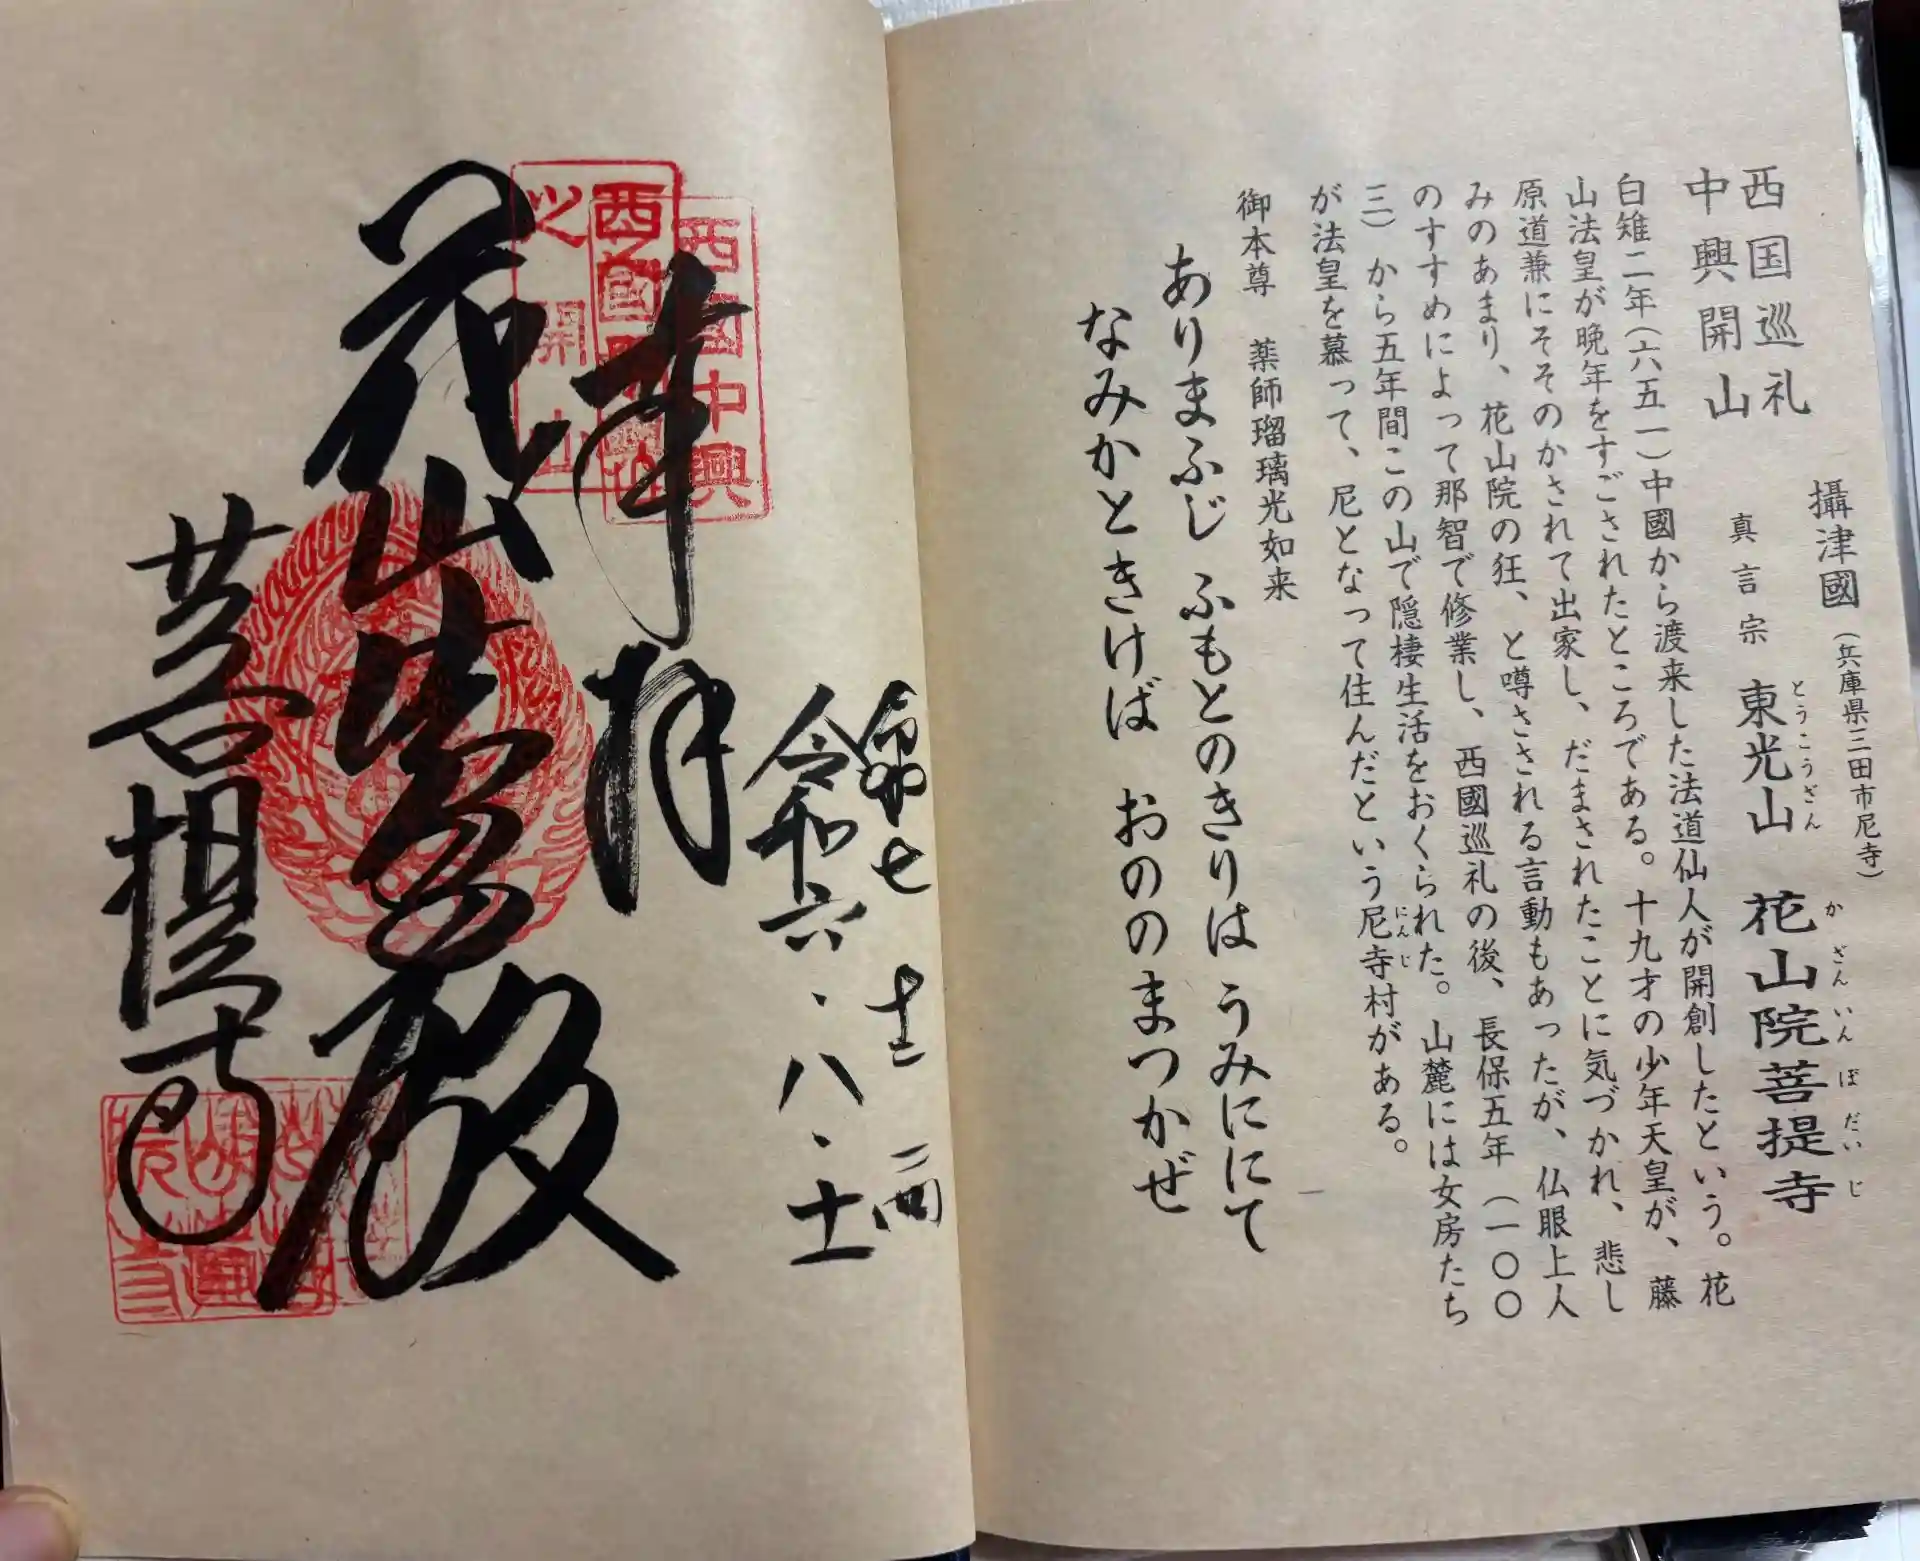 西国巡礼
中興開山
攝津國（兵庫県三田市尼寺）
真言宗 東光山 花山院菩提寺
とうこうざん かざんいんぼだいじ
白雉二年（六五一）中國から渡来した法道仙人が開創したという。花
山法皇が晩年をすごされたところである。十九才の少年天皇が、藤
原道兼にそそのかされて出家し、だまされたことに気づかれ、悲し
みのあまり、花山院の狂、と噂さされる言動もあったが、仏眼上人
のすすめによって那智で修業し、西國巡礼の後、長保五年（一〇〇
三）から五年間この山で隠棲生活をおくられた。山麓には女房たち
が法皇を慕って、尼となって住んだという尼寺村がある。
にんじ
御本尊 薬師瑠璃光如来
ありまふじ ふもとのきりは うみににて
なみかとききけば おののまつかぜ
西國中興
奉拝
令和六・八・十一
花山
菩提寺